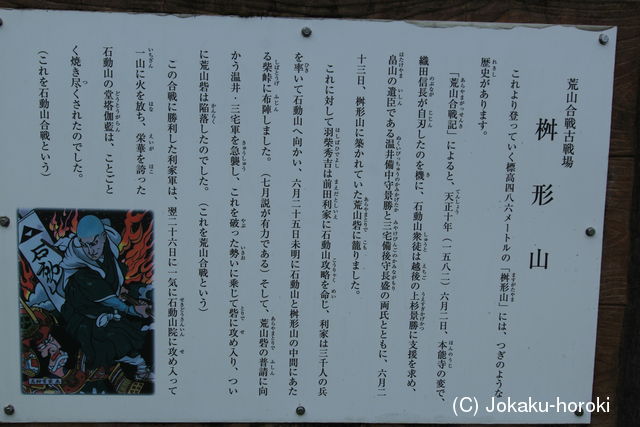 荒山合戦古戦場
桝形山
これより登っていく標高四八六メートルの「桝形山」には、つぎのような
歴史があります。
「荒山合戦記」によると、天正十年（一五八二）六月二日、本能寺の変で、
織田信長が自刃したのを機に、石動山衆徒は越後の上杉景勝に支援を求め、
畠山の遺臣である温井備中守景勝と三宅備後守長盛の両氏とともに、六月二
十三日、桝形山に築かれていた荒山砦に籠りました。
これに対して羽柴秀吉は前田利家に石動山攻略を命じ、利家は三千人の兵
を率いて石動山へ向かい、六月二十五日未明に石動山と桝形山の中間にあた
る柴峠に布陣しました。（七月説が有力である）そして、荒山砦の普請に向
かう温井・三宅軍を急襲し、これを破った勢いに乗じて砦に攻め入り、つい
に荒山砦は陥落したのでした。（これを荒山合戦という）
この合戦に勝利した利家軍は、翌二十六日に一気に石動山院に攻め入って
一山に火を放ち、栄華を誇った
石動山の堂塔伽藍は、ことごと
く焼き尽くされたのでした。
（これを石動山合戦という）
(C) Jokaku-horoki